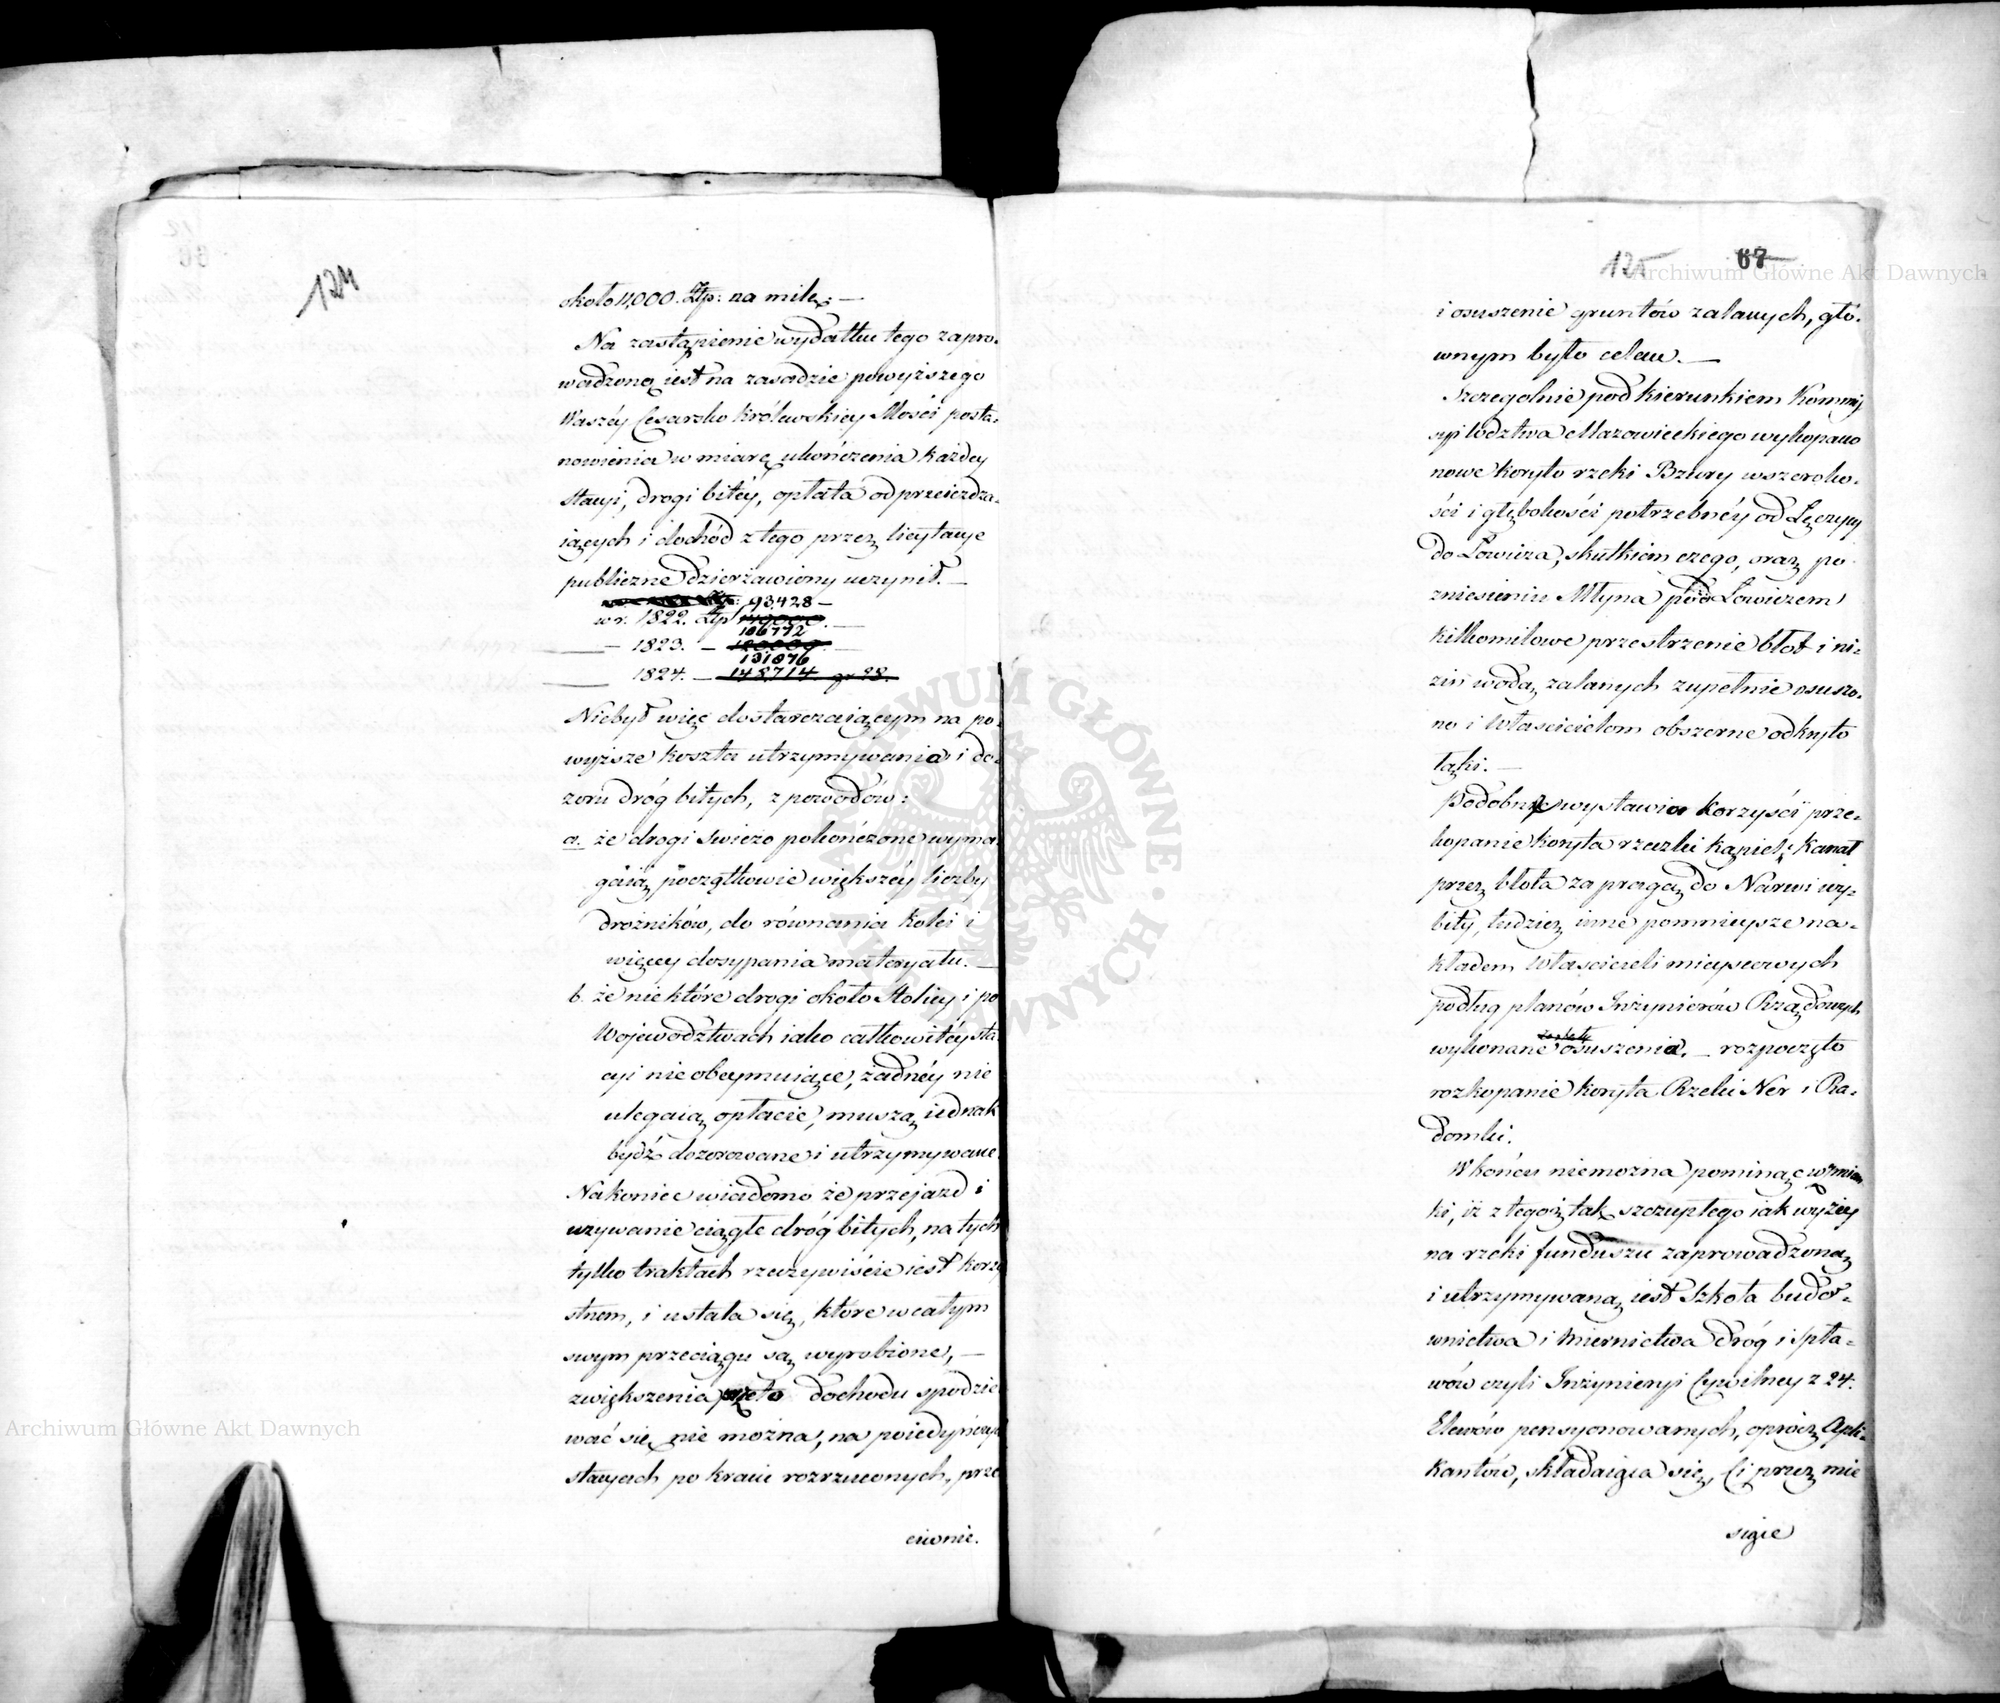 124
około 11,000. Złp: na milę; —
Na zastąpienie wydatku tego zapro-
wadzoną iest na zasadzie powyższego
Waszéy Cesarsko Królewskiey Mości posta-
nowienia w miarę ukończenia każdey
stacyi, drogi bitéy, opłata od przeieżdza-
iących i dochód z tego przez licytacye
publiczne dzierżawiony uczynił. —
93,428 —
w r. 1822. Złp
106772
— 1823. —
131876
1824. — 148,714 gr 28.
Niebył więc dostarczaiącym na po-
wyższe koszta utrzymywania i do-
zoru dróg bitych, z powodów:
a. że drogi swieżo pokończone wyma-
gaią początkowie większéy liczby
drożników, do równania kolei i
więcey dosypania materyału. —
b. że niektóre drogi około Stolicy i po
Województwach iako całkowitéy sta-
cyi nie obeymuiące, żadnéy nie
ulegaią opłacie, muszą iednak
bydź dozorowane i utrzymywane.
Nakoniec wiadomo że przejazd i
używanie ciągłe dróg bitych, na tych
tylko traktach rzeczywiście iest korzy
stnem, i ustala się, które w całym
swym przeciągu są wyrobione, —
zwiększenia przeto dochodu spodzie
wać się nie można, na poiedyńczych
stacyach po kraiu rozrzuconych, prze
ciwnie.
125 67
i osuszenie gruntów zalanych, głó-
wnym było celem. —
Szczególnie pod kierunkiem Kommis
syi Wdztwa Mazowieckiego wykopano
nowe koryto rzeki Bzury w szeroko-
ści i głębokości potrzebnéy od Łęczycy
do Łowicza, skutkiem czego, oraz po
zniesieniu Młyna pod Łowiczem
kilkomilowe przestrzenie błot i ni-
zin wodą zalanych zupełnie osuszo-
no i Właścicielom obszerne odkryto
łąki. —
Podobne wystawia korzyści prze-
kopanie koryta rzeczki Kąpieli; Kanał
przez błota za pragą do Narwi wy-
bity, tudzież inne pomnieysze na-
kładem Właścicieli mieyscowych
podług planów Inżynierów Rządowych
wykonane osuszenia. — rozpoczęto
rozkopanie koryta Rzeki Ner i Ra-
domki.
W końcu niemożna pominąć wzmian
ki, iż z tegoż tak szczupłego iak wyżey
na rzeki funduszu zaprowadzoną
i utrzymywaną iest Szkoła budo-
wnictwa i miernictwa dróg i spła-
wów czyli Inżynieryi Cywilney z 24.
Elewów pensyonowanych, oprócz Apli-
kantów, składaiąca się, Ci przez mie
siące
Archiwum Główne Akt Dawnych
Archiwum Główne Akt Dawnych
ARCHIWUM GŁÓWNE AKT DAWNYCH